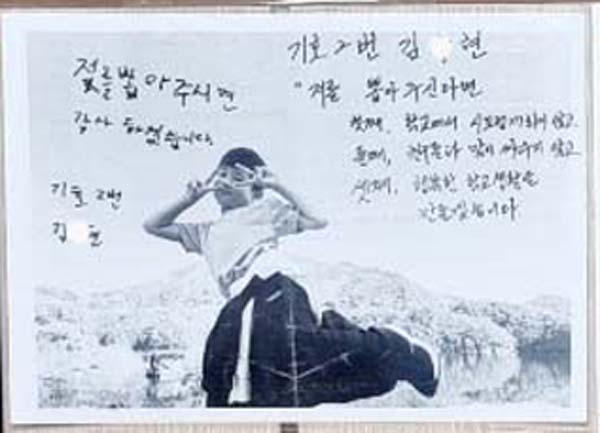 기호 2번 김 현
"저를 뽑아주신다면
첫째, 학교에서 시끄럽게하지 않고
둘째, 친구들과 많이 싸우지 않고
셋째, 행복한 학교생활을
만들겠습니다
절를 뽑아주시면
감사 하겠습니다.
기호 2번
김